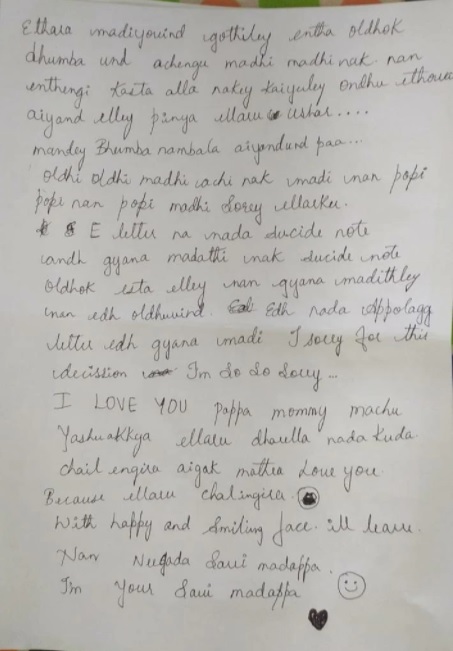 Ethara madiyouind gothiley entha oldhok
dhumba und achengu madhi madhi nak nan
enthengi Kasta alla nakey Kaiyuley ondhu
aiyand elley pinya ellaru ushar....
mandey Bhumba nambala aiyandund paa...
oldhi oldhi madhi nak madi nan popi
popi nan popi madhi Sorey ellarku.
E letter na nada sucide note
andh gyana madathi nak sucide note
oldhok esta elley nan gyana madithley
nan edh oldhuvind. Edh nada Appolagg
letter edh gyana madi I sorry for this
decission I'm So So Sorry...
I LOVE YOU pappa mommy machu
Yashuakkya ellaru dhaella nada Kuda.
chail engira aigak Love you.
Because ellaru chalingira.
With happy and Smiling face. ill leave.
Nan Neegada Savi madappa.
I'm Your Savi madappa